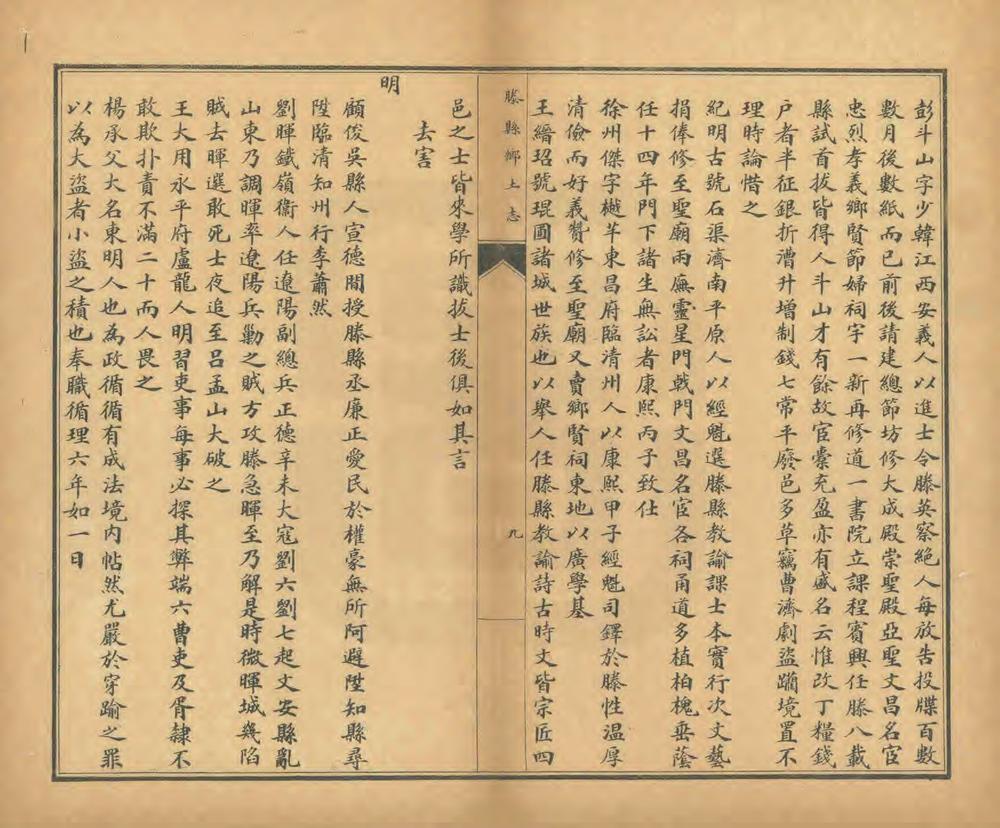 彭斗山字少韓江西安義人以進士令滕英察絕人每放告投牒百數
數月後數紙而已前後請建總節坊修大成殿崇聖殿亞聖文昌名宦
忠烈孝義鄉賢節婦祠宇一新再修道一書院立課程賓興任滕八載
縣試首拔皆得人斗山才有餘故宦橐充盈亦有盛名云惟改丁糧錢
户者半征銀折漕升增制錢七常平廢邑多草竊曹濟劇盜躪境置不
理時論惜之
紀明古號石渠濟南平原人以經魁選滕縣教諭課士本實行次文藝
捐俸修至聖廟兩廡靈星門戟門文昌名宦各祠甬道多植柏槐垂蔭
任十四年門下諸生無訟者康熙丙子致仕
徐州傑字樾芊東昌府臨清州人以康熙甲子經魁司鐸於滕性溫厚
清儉而好義贊修至聖廟又賣鄉賢祠東地以廣學基
王縉玿號琨圃諸城世族也以舉人任滕縣教諭詩古時文皆宗匠四
滕縣鄉土志
九
邑之士皆來學所識拔士後俱如其言
去害
明
顧俊吳縣人宣德間授滕縣丞廉正愛民於權豪無所阿避陞知縣尋
陞臨清知州行李蕭然
劉暉鐵嶺衞人任遼陽副總兵正德辛未大寇劉六劉七起文安縣亂
山東乃調暉率遼陽兵勦之賊方攻滕急暉至乃解是時微暉城幾陷
賊去暉選敢死士夜追至吕孟山大破之
王大用永平府盧龍人明習吏事每事必探其弊端六曹吏及胥隸不
敢欺扑責不滿二十而人畏之
楊承父大名東明人也為政循循有成法境内帖然尤嚴於穿踰之罪
以為大盜者小盜之積也奉職循理六年如一日